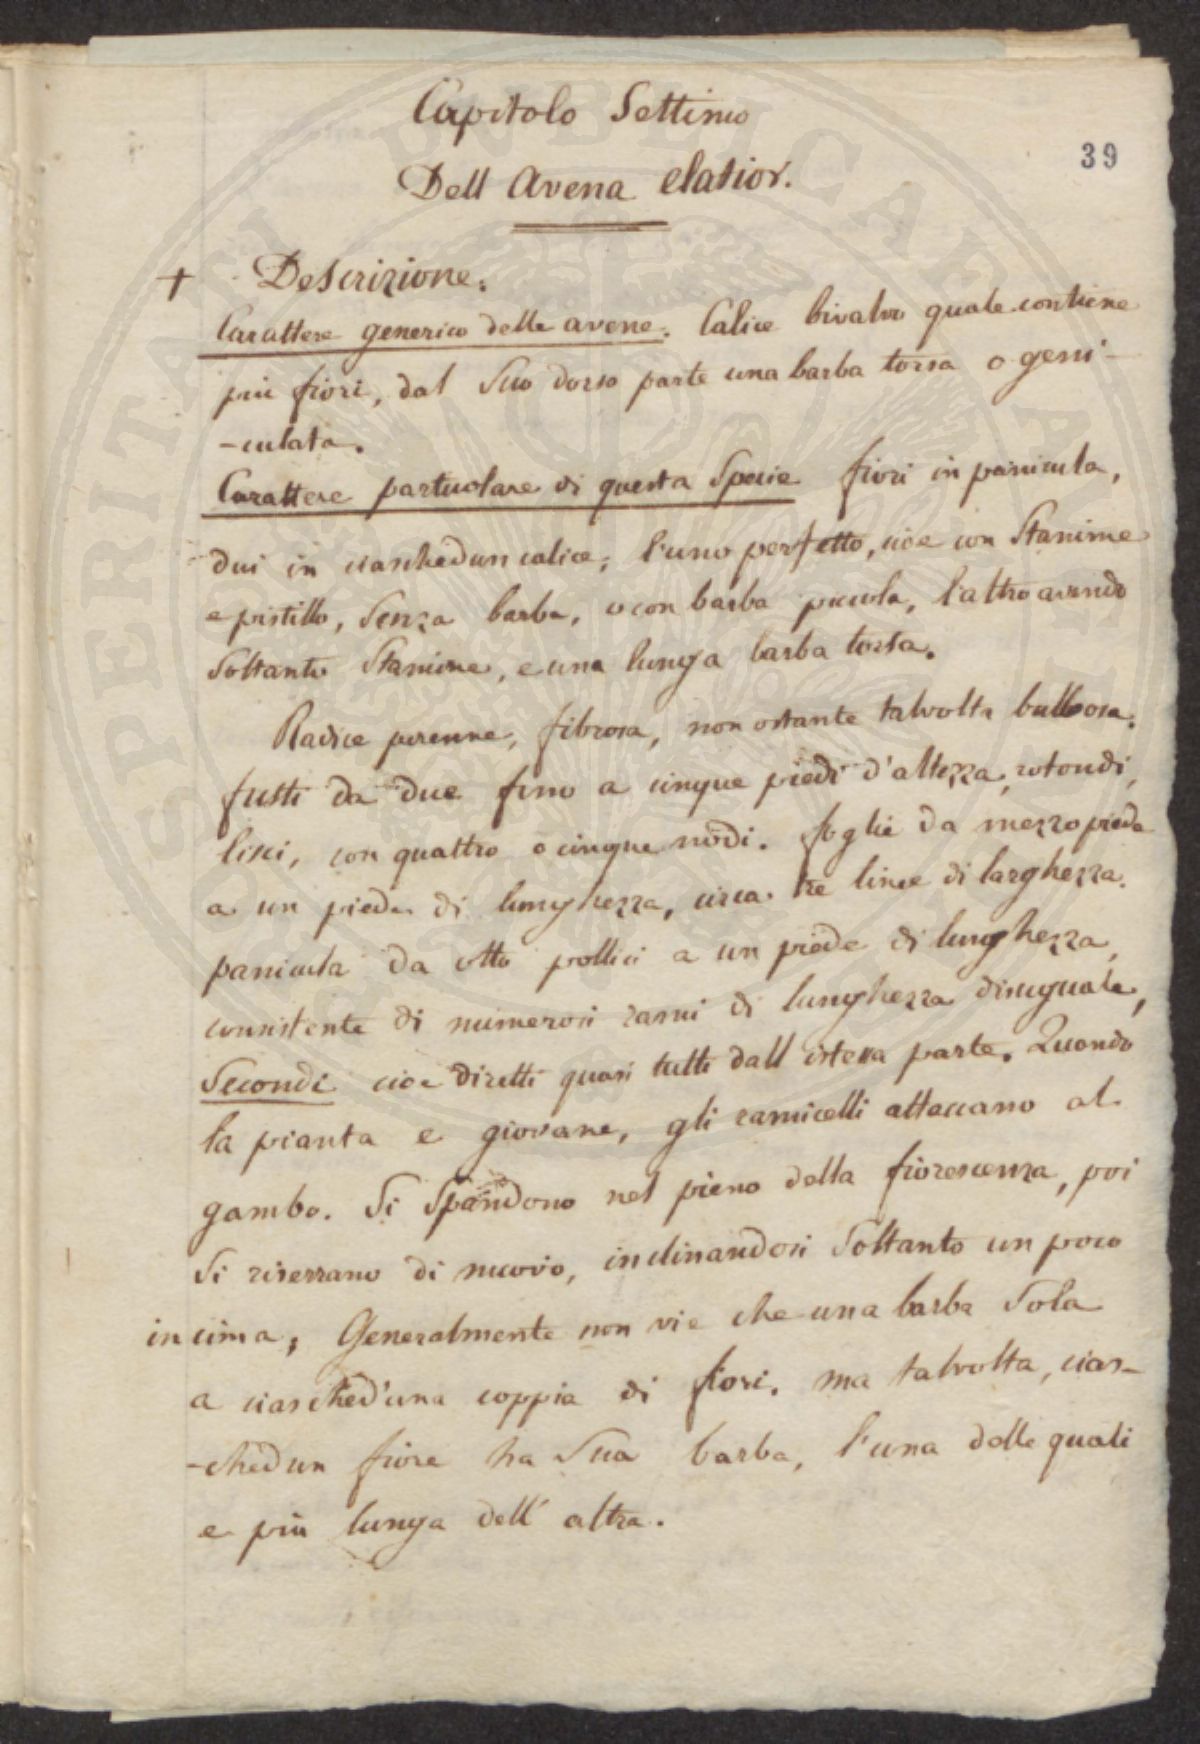 Capitolo Settimo
39
Dell Avena elatior.
+ Descrizione.
Carattere generico delle avene. Calice bivalvo quale contiene
piu fiori, dal suo dorso parte una barba torsa o geni-
-culata.
Carattere particolare di questa Specie fiori in panicula,
dui in ciaschedun calice; l'uno perfetto, cioe con Stamine
e pistillo, senza barba, o con barba piccola, l'altro avendo
soltanto Stamine, e una lunga barba torta.
Radice perenne, fibrosa, non ostante talvolta bulbosa.
fusti da due fino a cinque piedi d'altezza, rotondi,
lisci, con quattro o cinque nodi. foglie da mezzo piede
a un piede di lunghezza, circa tre linee di larghezza.
panicula da otto pollici a un piede di lunghezza,
consistente di numerosi rami di lunghezza disuguale,
Secondi cioe diretti quasi tutti dall istessa parte. Quando
la pianta e giovane, gli ramicelli attaccano al
gambo. Si spandono nel pieno della fiorescenza, poi
si riserrano di nuovo, inclinandosi soltanto un poco
in cima; Generalmente non vi e che una barba sola
a ciasched'una coppia di fiori. ma talvolta, cias-
-chedun fiore ha sua barba, l'una delle quali
e piu lunga dell' altra.
SPERITATI PUBLICAE AVGEN